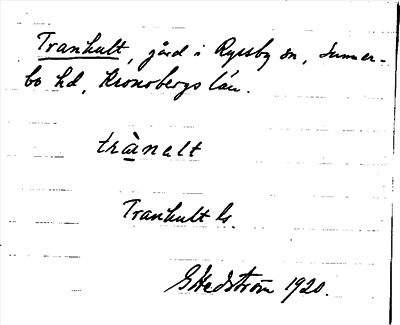 Tranhult, gård i Ryssby sn, Sunner-
bo hd, Kronobergs län.
trànalt
Tranhult ls.
G Hedström 1920.